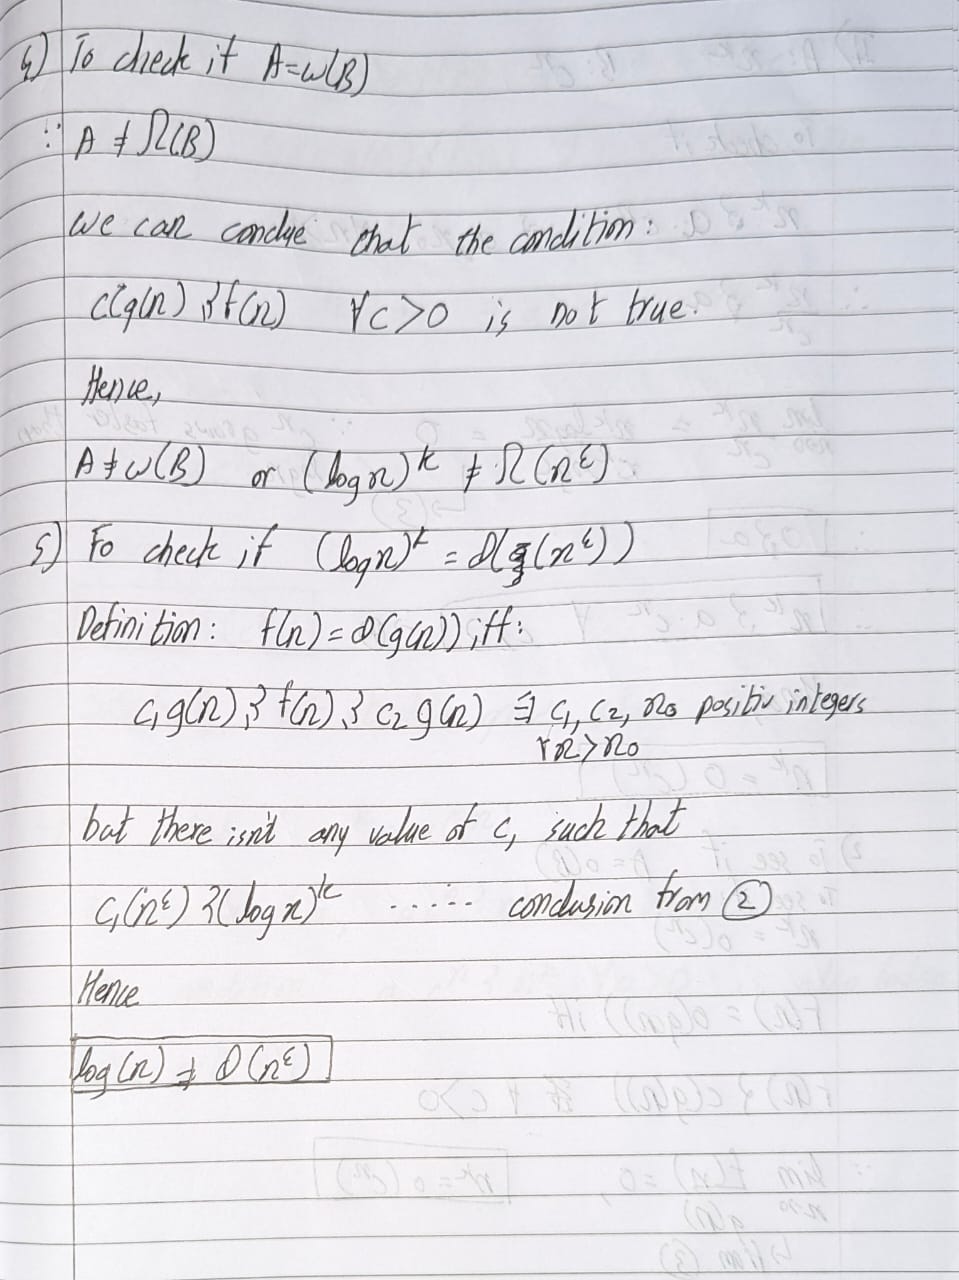 4) To check if A=ω(B)
∵ A ≠ Ω(B)
we can conclue that the condition:
c(g(n) ≤ f(n) ∀c>0 is not true.
Hence,
A≠ω(B) or (log n)^k ≠ Ω(n^ε)
5) To check if (log n)^k = Θ(g(n^ε))
Definition: f(n)=Θ(g(n)) iff:
c₁g(n) ≤ f(n) ≤ c₂ g(n) ∃ c₁, c₂, n₀ positiv integers
∀n>n₀
but there isn't any value of c₁ such that
c₁(n^ε) ≤ (log n)^k ...... conclusion from ②
Hence
log(n) ≠ Θ(n^ε)